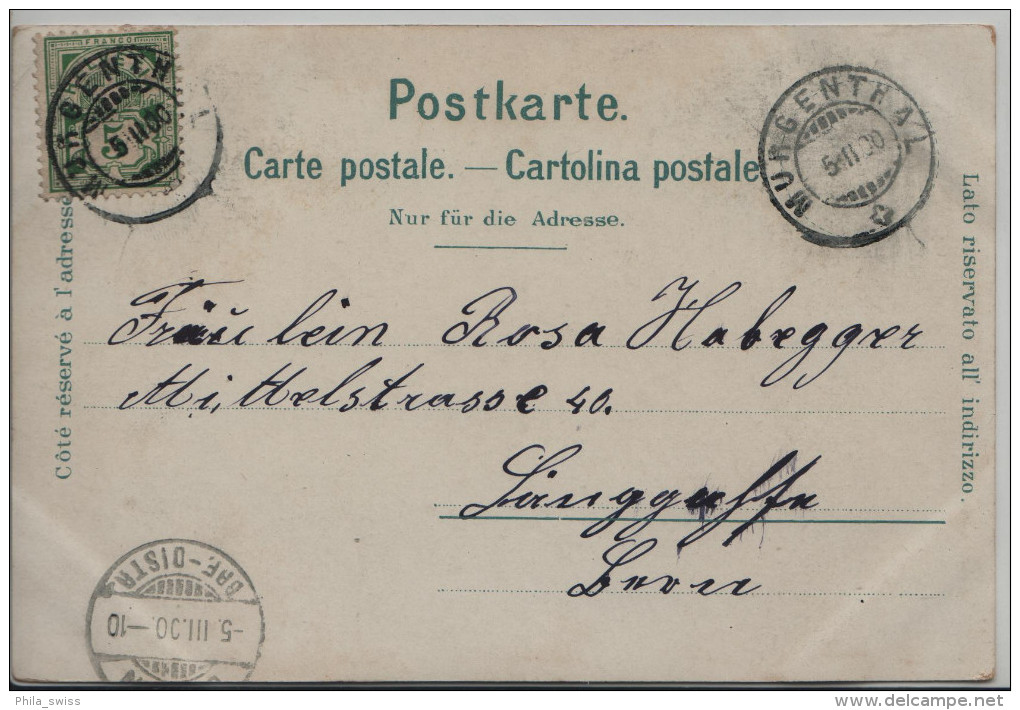 FRANCO
MURGENTHAL
5.III.00
5
Postkarte.
MURGENTHAL
5.III.00
Carte postale. — Cartolina postale
Nur für die Adresse.
Côté réservé à l'adresse
Lato riservato all' indirizzo.
Fräulein Rosa Habegger
Mittelstrasse 40.
Länggasse
Bern
BRF-DISTR.
-5.III.00.-10
Phila_swiss
www.delcampe.net